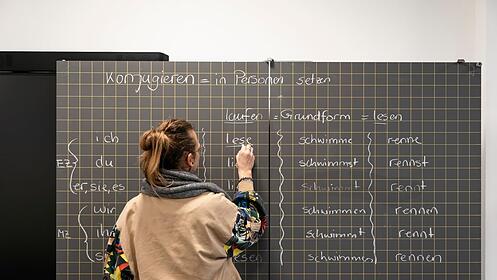 Konjugieren = in Personen setzen
laufen = Grundform = lesen
ich lese schwimme renne
EZ du schwimmst rennst
er, sie, es schwimmt rennt
wir schwimmen rennen
MZ schwimmt rennt
sen schwimmen rennen